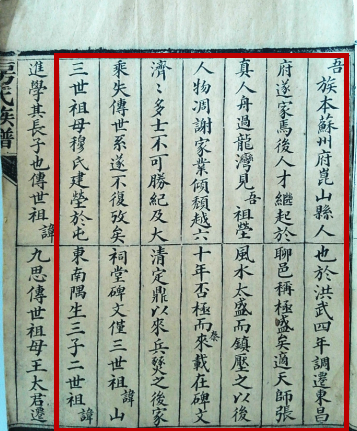 吾族本蘇州府崑山縣人也於洪武四年調遷東昌
府遂家焉後人才繼起於聊邑稱極盛矣適天師張
真人舟過龍灣見吾祖塋風水太盛而鎮壓之以後
人物凋謝家業傾頹越六十年否極而泰來載在碑文
濟濟多士不可勝紀及大清定鼎以來兵燹之後家
乘失傳世系遂不復攷矣祠堂碑文僅三世祖諱山
三世祖母穆氏建塋於屯東南隅生三子二世祖諱
進學其長子也傳世祖諱九思傳世祖母王太君遷
氏族譜